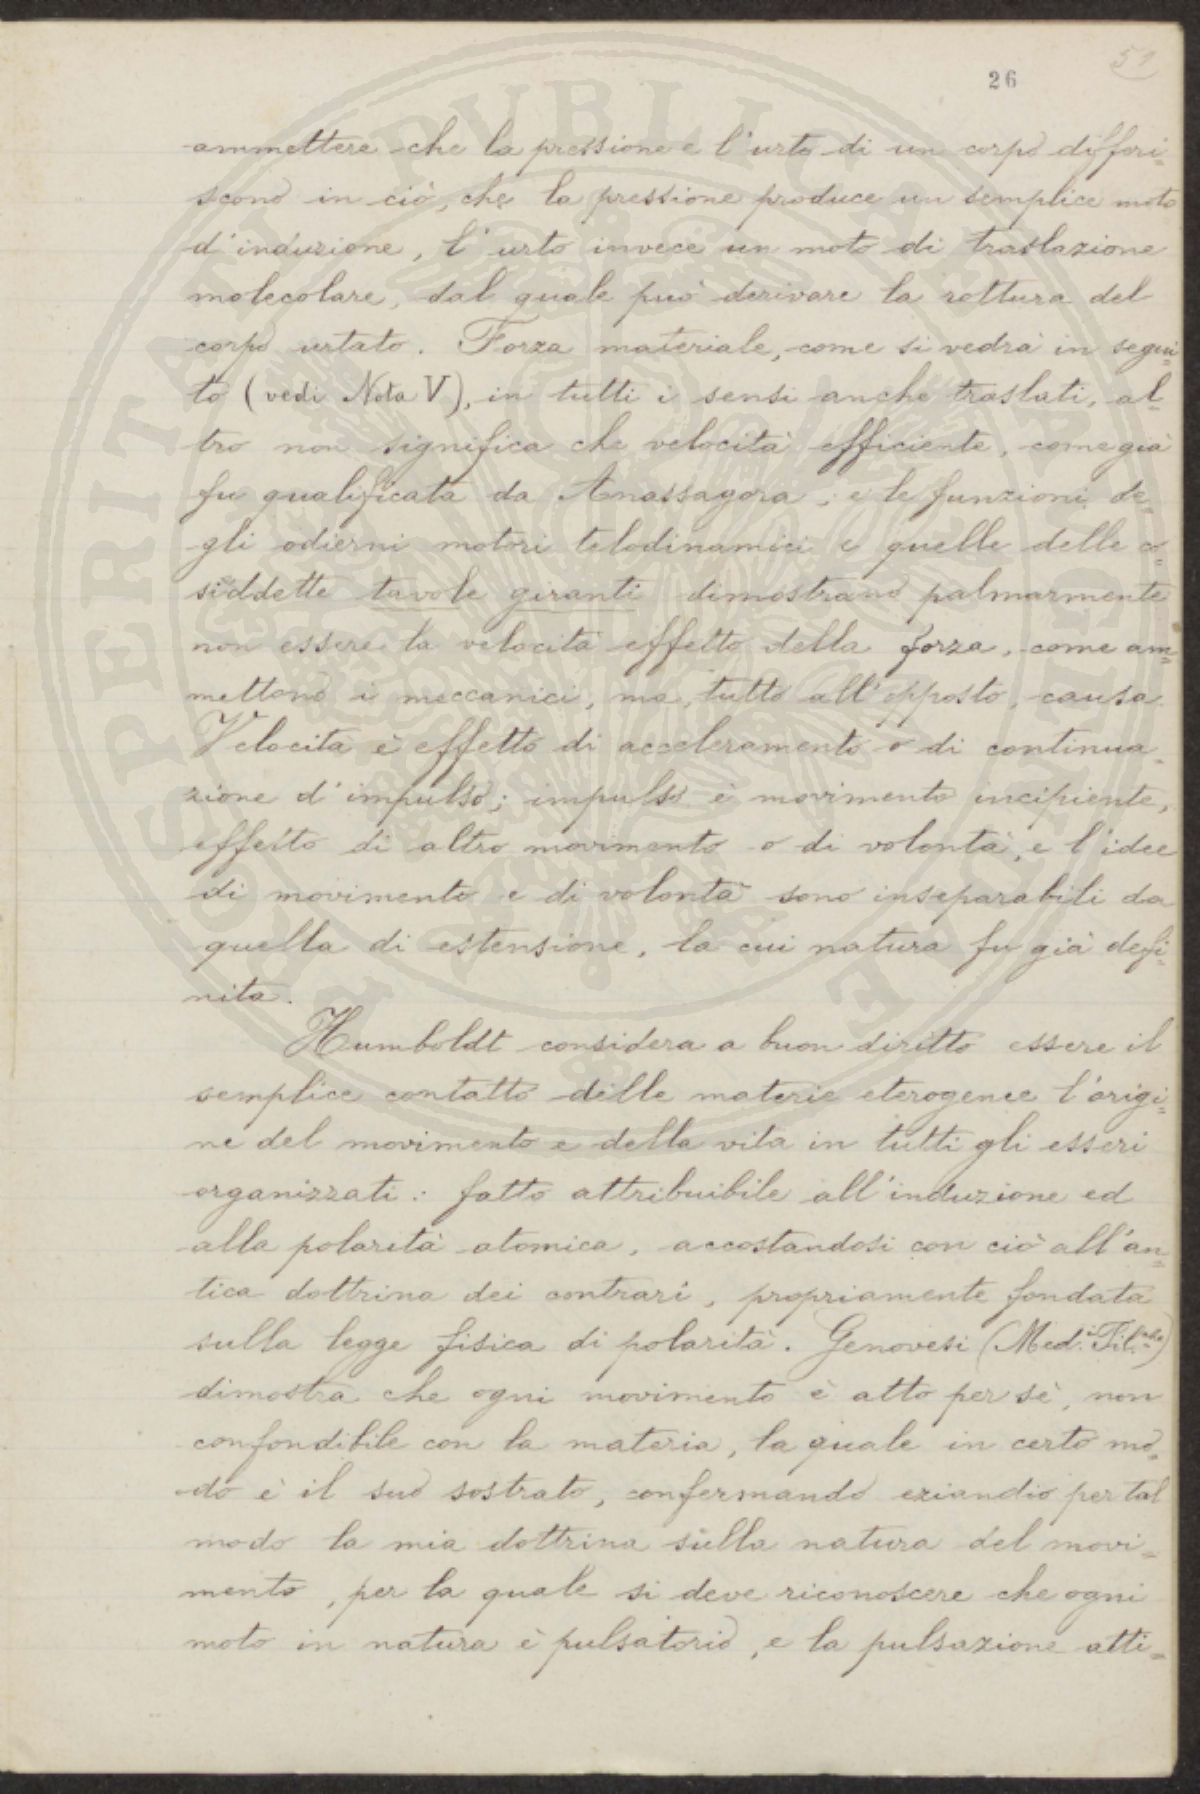 51
26
ammettere che la pressione e l'urto di un corpo differi=
scono in ciò, che la pressione produce un semplice moto
d'induzione, l'urto invece un moto di traslazione
molecolare, dal quale può derivare la rottura del
corpo urtato. Forza materiale, come si vedrà in segui=
to (vedi Nota V), in tutti i sensi anche traslati, al=
tro non significa che velocità efficiente, come già
fu qualificata da Anassagora; e le funzioni de=
gli odierni motori telodinamici e quelle delle co=
siddette tavole giranti dimostrano palmarmente
non essere la velocità effetto della forza, come am=
mettono i meccanici, ma, tutto all'opposto, causa.
Velocità è effetto di acceleramento o di continua=
zione d'impulso; impulso è movimento incipiente,
effetto di altro movimento o di volontà, e l'idee
di movimento e di volontà sono inseparabili da
quella di estensione, la cui natura fu già defi=
nita.
Humboldt considera a buon diritto essere il
semplice contatto delle materie eterogenee l'origi=
ne del movimento e della vita in tutti gli esseri
organizzati: fatto attribuibile all'induzione ed
alla polarità atomica, accostandosi con ciò all'an=
tica dottrina dei contrari, propriamente fondata
sulla legge fisica di polarità. Genovesi (Med.i Fil.che)
dimostra che ogni movimento è atto per sè, non
confondibile con la materia, la quale in certo mo=
do è il suo sostrato, confermando eziandio per tal
modo la mia dottrina sulla natura del movi=
mento, per la quale si deve riconoscere che ogni
moto in natura è pulsatorio, e la pulsazione atti=
PROSPERITATI PVBLICAE